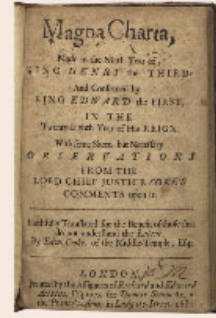 Magna Charta,
Made in the Ninth Year of
KING HENRY the THIRD,
And Confirmed by
KING EDWARD the FIRST,
IN THE
Twenty eighth Year of His REIGN.
With some Short, but Necessary
OBSERVATIONS
FROM THE
LORD CHIEF JUSTICE COKE'S
COMMENTS upon it.
Faithfully Translated for the Benefit of those that
do not understand the
By Edw. Cooke, of the Middle-Temple, Esq;
LONDON,
Printed by the Assignees of Richard and Edward
Atkins, Esquires, for Thomas Simmons, at
the Princes Arms in Ludgate-street.